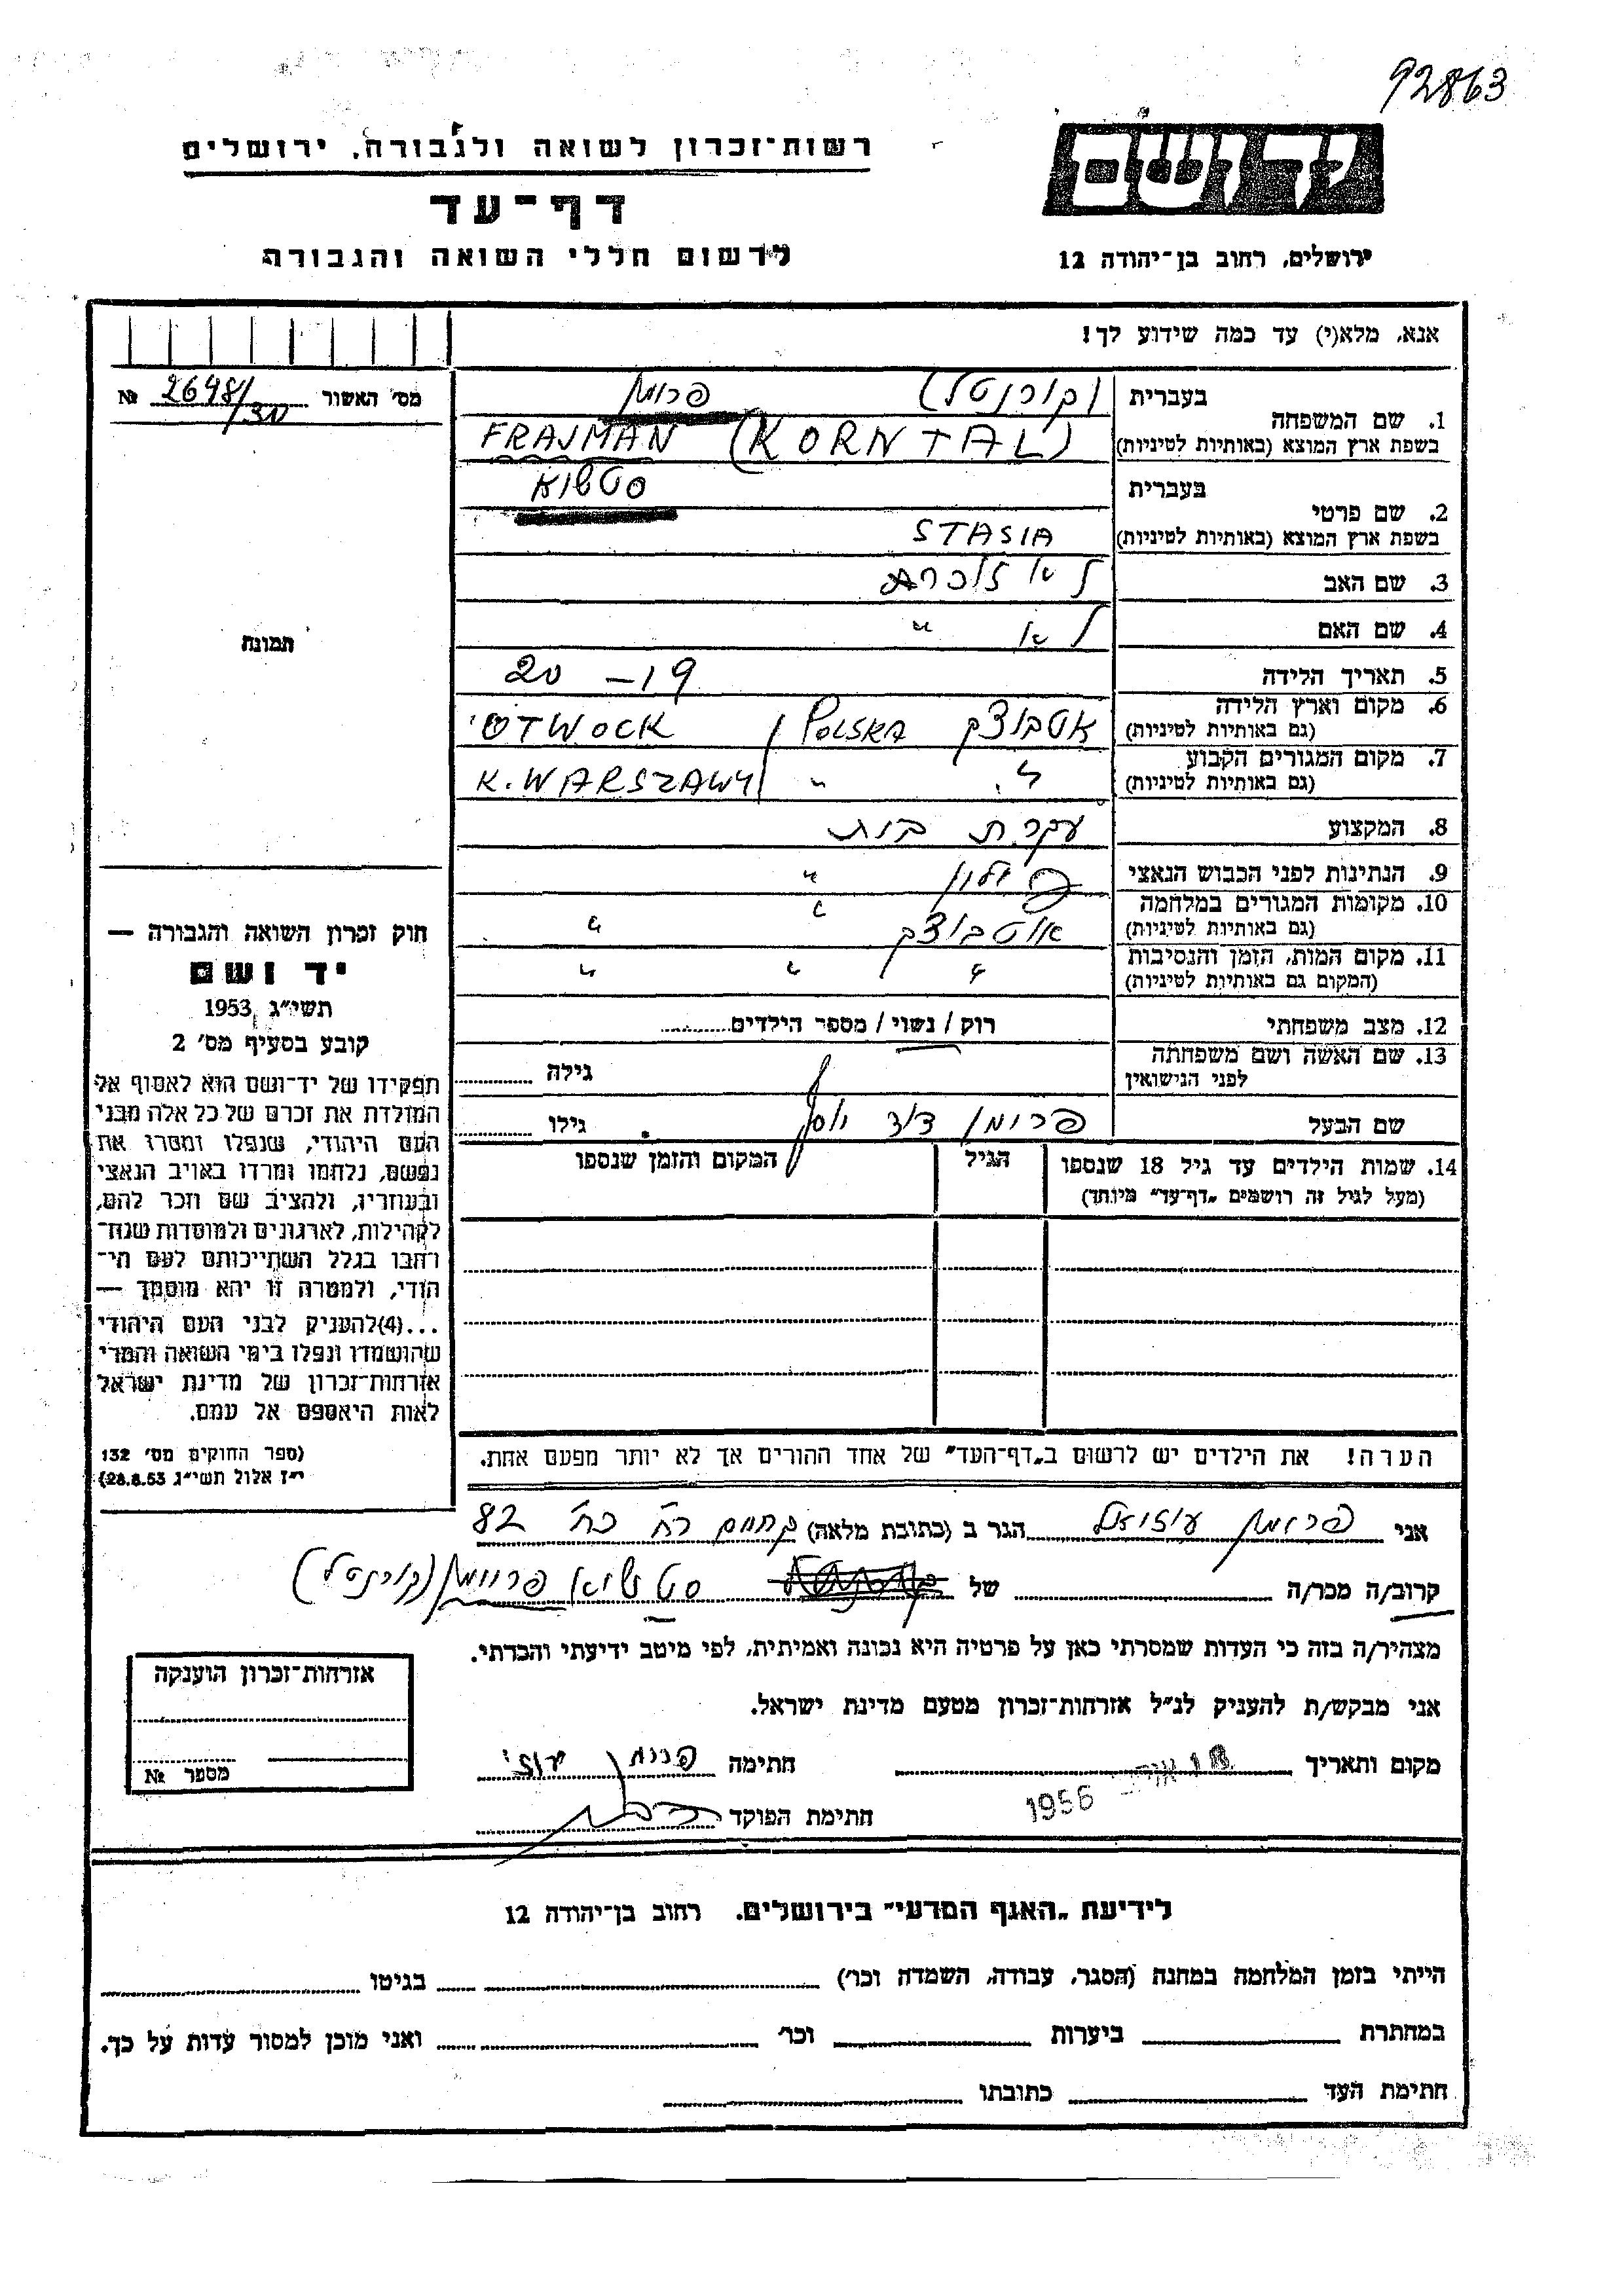 92863
רשות־זכרון לשואה ולגבורה, ירושלים
יד ושם
דף־עד
לרשום חללי השואה והגבורה
ירושלים, רחוב בן־יהודה 12
אנא, מלא(י) עד כמה שידוע לך!
מס׳ האשור 2698/30 №
1. שם המשפחה
בעברית (קורנטל) פרומן
בשפת ארץ המוצא (באותיות לטיניות) FRAJMAN (KORNTAL)
2. שם פרטי
בעברית
בשפת ארץ המוצא (באותיות לטיניות) STASIA
3. שם האב לא זוכרת
4. שם האם לא "
תמונה
5. תאריך הלידה 19-20
6. מקום וארץ הלידה
(גם באותיות לטיניות) אטבוצק POLSKA / OTWOCK
7. מקום המגורים הקבוע
(גם באותיות לטיניות) " K. WARSZAWY
8. המקצוע עקרת בית
9. הנתינות לפני הכבוש הנאצי פולין "
10. מקומות המגורים במלחמה
(גם באותיות לטיניות) אוטבוצק " "
11. מקום המות, הזמן והנסיבות
(המקום גם באותיות לטיניות) " " "
12. מצב משפחתי רוק / נשוי / מספר הילדים
13. שם האשה ושם משפחתה
לפני הנישואין גילה
שם הבעל פרומן דוד יוסף גילו
14. שמות הילדים עד גיל 18 שנספו הגיל המקום והזמן שנספו
(מעל לגיל זה רושמים „דף־עד״ מיוחד)
הערה! את הילדים יש לרשום ב„דף־העד״ של אחד ההורים אך לא יותר מפעם אחת.
חוק זכרון השואה והגבורה —
יד ושם
תשי״ג 1953
קובע בסעיף מס׳ 2
תפקידו של יד־ושם הוא לאסוף אל
המולדת את זכרם של כל אלה מבני
העם היהודי, שנפלו ומסרו את
נפשם, נלחמו ומרדו באויב הנאצי
ובעוזריו, ולהציב שם וזכר להם,
לקהילות, לארגונים ולמוסדות שנח־
רחבו בגלל השתייכותם לעם הי־
הודי, ולמטרה זו יהא מוסמך —
...(4)להעניק לבני העם היהודי
שהושמדו ונפלו בימי השואה והמרי
אזרחות־זכרון של מדינת ישראל
לאות היאספם אל עמם.
(ספר החוקים מס׳ 132
י״ז אלול תשי״ג 28.8.53)
אני פרומן עוזיאל הגר ב (כתובת מלאה) 82
קרוב/ה מכר/ה של פרוימן (קורנטל)
מצהיר/ה בזה כי העדות שמסרתי כאן על פרטיה היא נכונה ואמיתית, לפי מיטב ידיעתי והכרתי.
אני מבקש/ת להעניק לנ״ל אזרחות־זכרון מטעם מדינת ישראל.
מקום ותאריך 1956 חתימה
חתימת הפוקד
אזרחות־זכרון הוענקה
מספר №
לידיעת „האגף המדעי״ בירושלים. רחוב בן־יהודה 12
הייתי בזמן המלחמה במחנה (הסגר, עבודה, השמדה וכו׳) בגיטו
במחתרת ביערות וכו׳ ואני מוכן למסור עדות על כך.
חתימת העד כתובתו